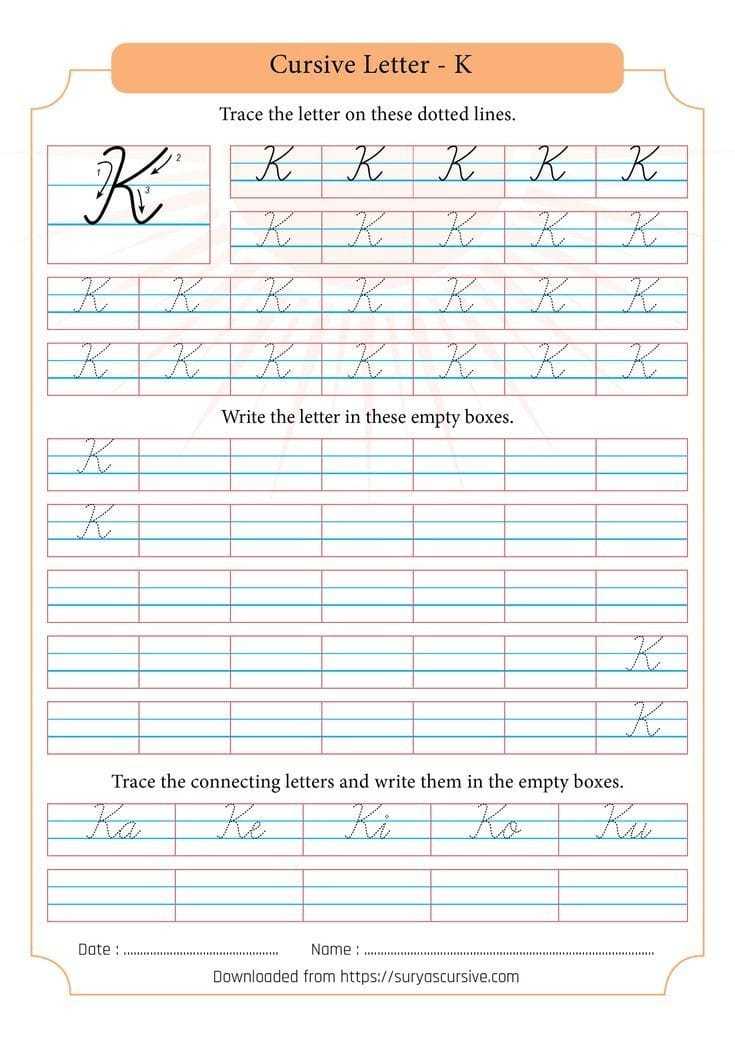 Cursive Letter - K
Trace the letter on these dotted lines.
K 1 2 3
K K K K K
K K K K K
K K K K K K K
K K K K K K K
Write the letter in these empty boxes.
K
K
K
K
Trace the connecting letters and write them in the empty boxes.
Ka Ke Ki Ko Ku
Date : ............................................... Name : ....................................................................................
Downloaded from https://suryascursive.com